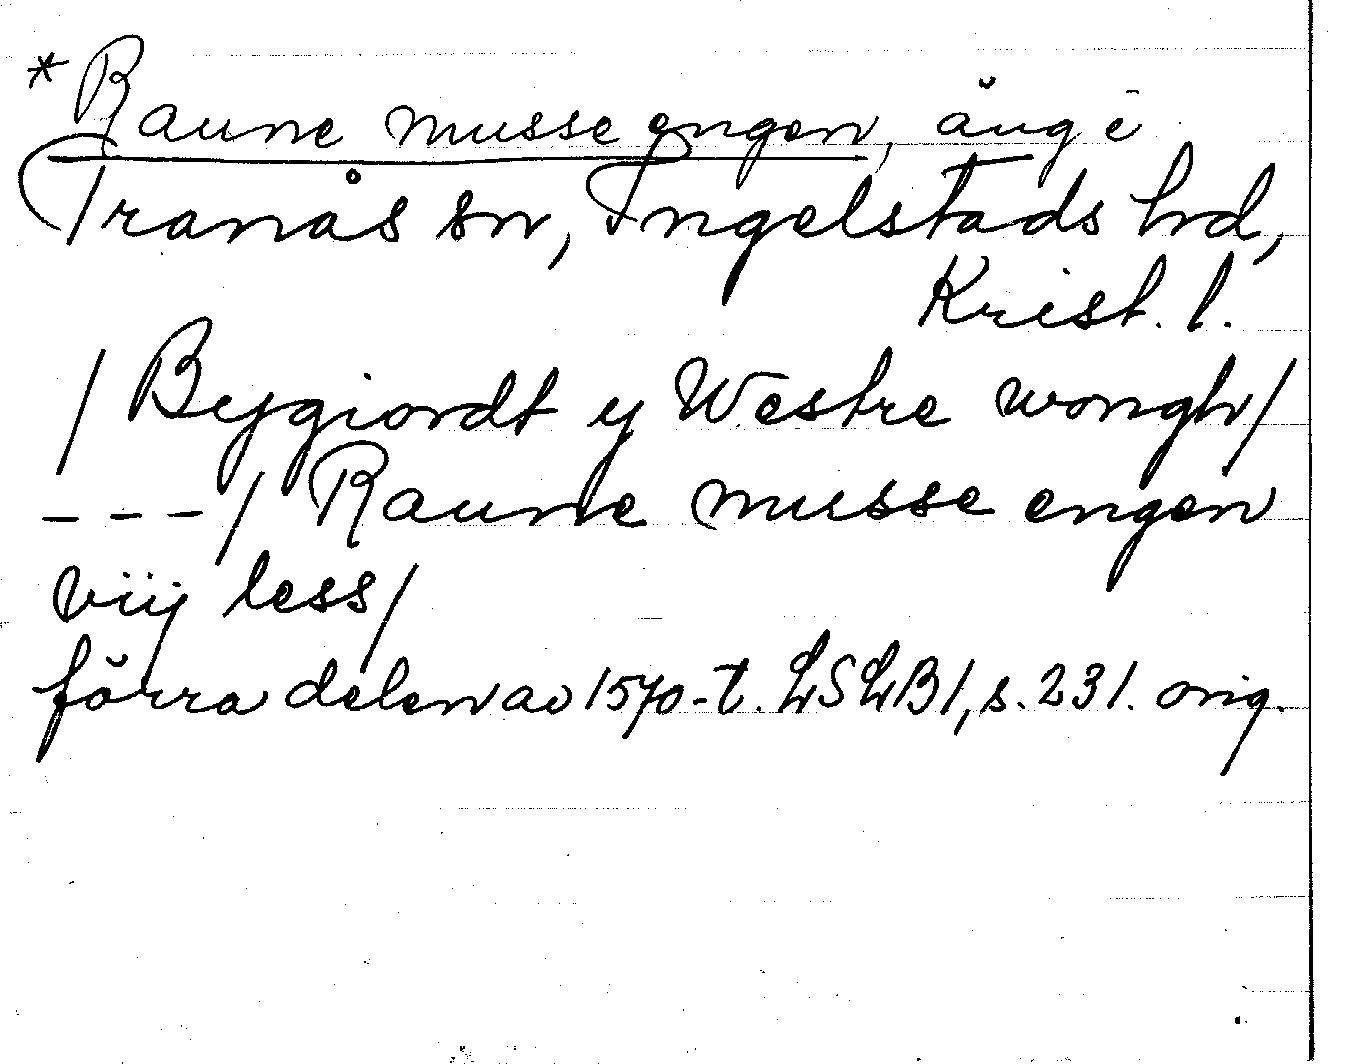 *Raune musse engen, äng i
Tranås sn, Ingelstads hd,
Krist. l.
/ Bygiordt y Westre wongh/
---/ Raune musse engen
viij less/
förra delen av 1570-t. LSLB1, s. 231. orig.